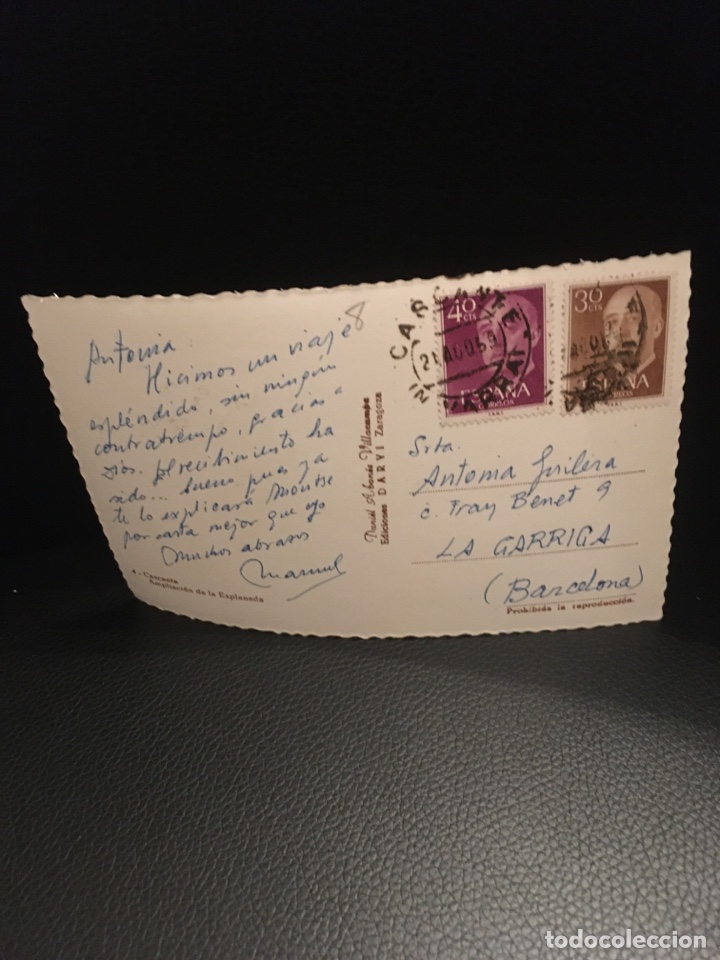 Antonia
Hicimos un viaje
espléndido, sin ningún
contratiempo, gracias a
Dios. El recibimiento ha
sido... bueno pues ya
te lo explicará Montse
por carta mejor que yo
Muchos abrazos
Manuel
8
4.- Cascante
Ampliación de la Explanada
Daniel Arbonés Villacampa
Ediciones DARVI Zaragoza
40
CTS
ESPAÑA
CORREOS
30
CTS
ESPAÑA
CORREOS
CASCANTE
21 AGO 59
Srta.
Antonia Guilera
c. Fray Benet 9
LA GARRIGA
(Barcelona)
Prohibida la reproducción.
todocoleccion